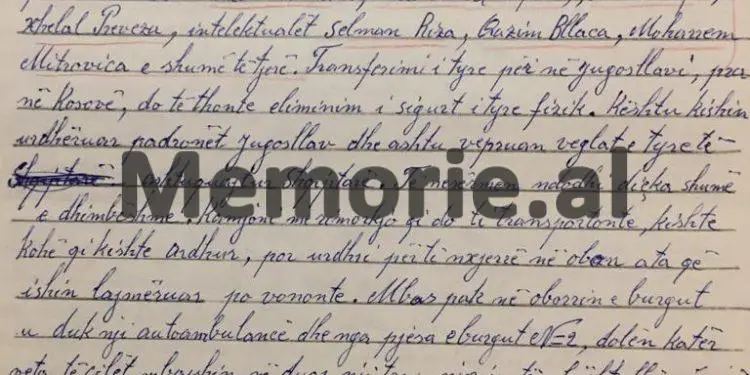 xhelal Preveza, intelektualët Selman Riza, Gazim Bllaca, Moharrem
Mitrovica e shumë të tjerë. Transferimi i tyre për në Jugosllavi, pra
në Kosovë, do të thonte eliminim i sigurt i tyre fizik. Kështu kishin
urdhëruar padronët jugosllav dhe ashtu vepruan veglat e tyre të-
ashtuquajtur shqiptarë. Të nesërmen ndodhi diçka shumë
e dhimbëshme. Kamjoni me rimorkjo qi do ti transportonte, kishte
kohë qi kishte ardhur, por urdhri për ti nxjerrë në oborr ata që
ishin lajmëruar po vononte. Mbas pak në oborrin e burgut
u duk nji autoambulancë dhe nga pjesa e burgut N=2, dolën katër
veta të cilët mbanin në duar
Memorie.al